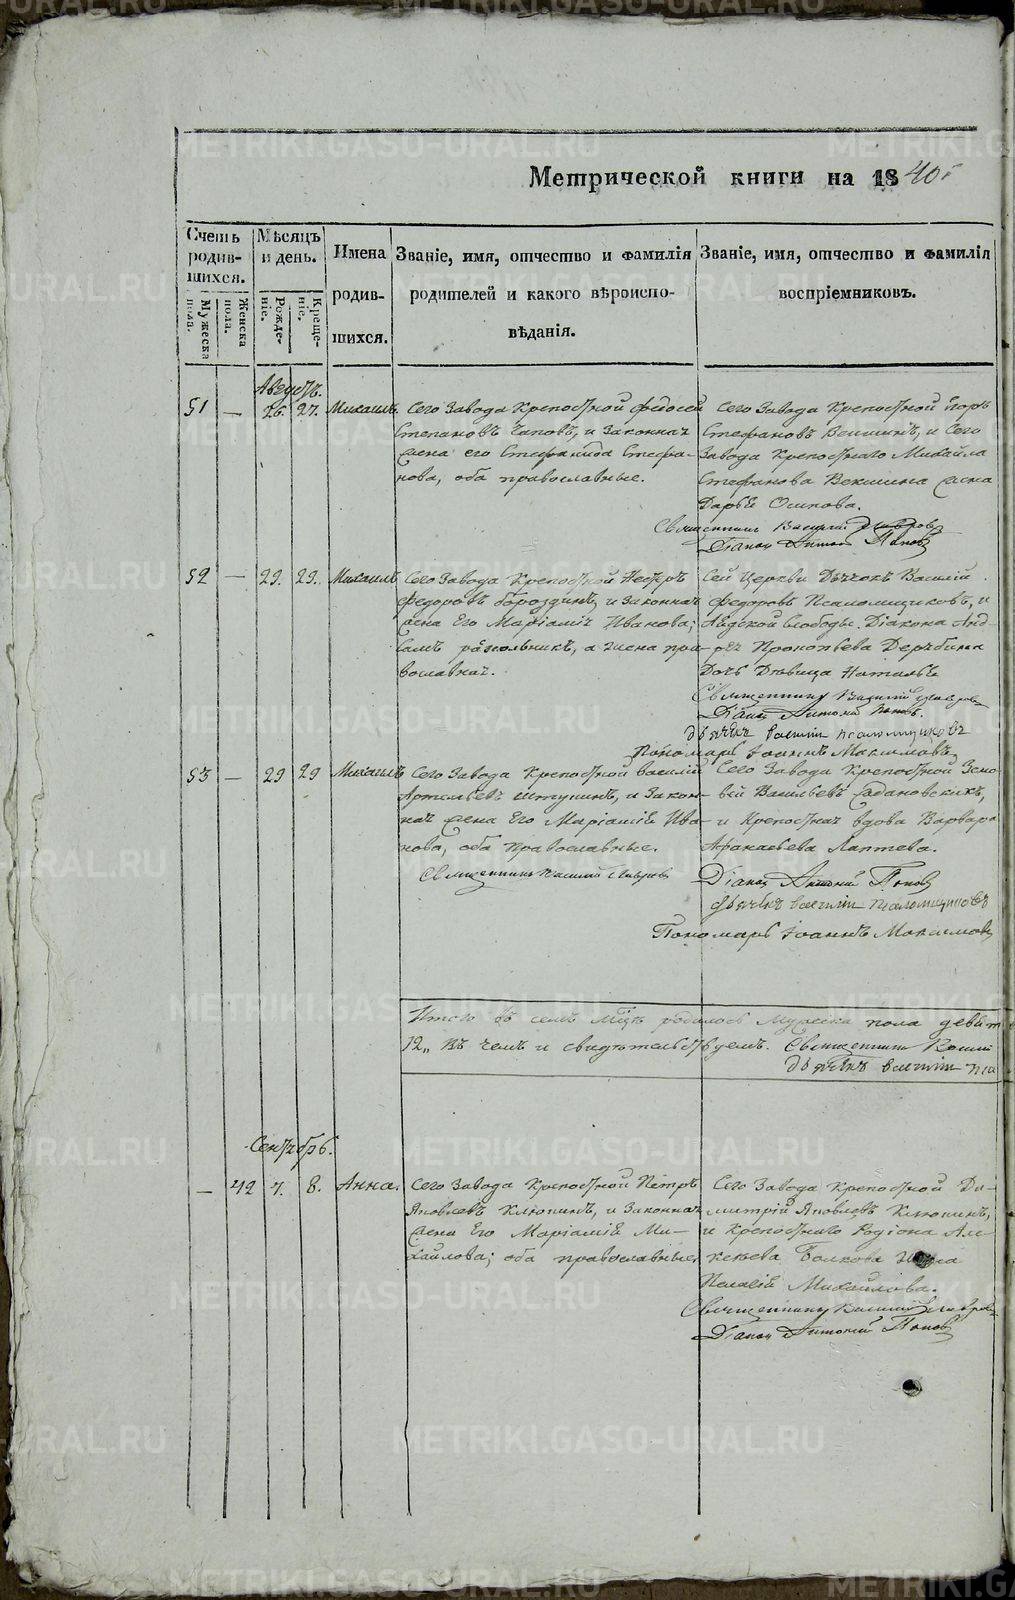 Метрической книги на 1840 г
Счетъ родившихся.
Мужеска пола.
Женска пола.
Мѣсяцъ и день.
Рожденіе.
Крещеніе.
Имена родившихся.
Званіе, имя, отчество и фамилія родителей и какого вѣроисповѣданія.
Званіе, имя, отчество и фамилія воспріемниковъ.
Августъ.
51 — 26. 27. Михаилъ.
Сего Завода Крепостной Федосей
Степановъ и Законная
жена его Стефанида Стефа-
нова, оба православные.
Сего Завода Крепостной
Стефановъ Векшинъ, и Сего
Завода Крепостнаго Михайла
Стефанова Векшина жена
Дарья Осипова.
Священникъ Василий
Діаконъ Антоній Поповъ
52 — 29. 29. Михаилъ
Сего Завода Крепостной
Федоровъ Бороздинъ, и Законная
жена Его Маріамія Иванова;
самъ раскольникъ, а жена пра-
вославная.
Сей Церкви Дьячокъ Василій
Федоровъ Псаломщиковъ, и
Слободы Діакона Анд-
рея Прокопьева Дерябина
Дочь Девица Наталья
Священникъ Василий
Діаконъ Антоній Поповъ.
дьячекъ василіи псаломщиковъ
Пономарь Іоаннъ Максимовъ
53 — 29 29 Михаилъ
Сего Завода Крепостной василій
Артемьевъ и Закон-
ная жена Его Маріамія Ива-
нова, оба православные.
Священникъ Василий
Сего Завода Крепостной Зено-
вей Васильевъ Садановскихъ,
и Крепостная вдова Варвара
Афанасьева Лаптева.
Діаконъ Антоній Поповъ
дьячекъ василіи псаломщиковъ
Пономарь Іоаннъ Максимовъ
Итого въ семъ родилось Мужеска пола девят
12,, Въ чемъ и свидетельствуемъ. Священникъ
дьячекъ василіи пса
Сентябрь.
— 42 7. 8. Анна.
Сего Завода Крепостной Петръ
Яковлевъ Клюкинъ, и Законная
жена Его Маріамія Ми-
хайлова; оба православные.
Сего Завода Крепостной Ди-
митрій Яковлевъ Клюкинъ,
и Крепостнаго Родіона Але-
жена
Пелагія Михайлова.
Священникъ Василий
Діаконъ Антоній Поповъ
METRIKI.GASO-URAL.RU